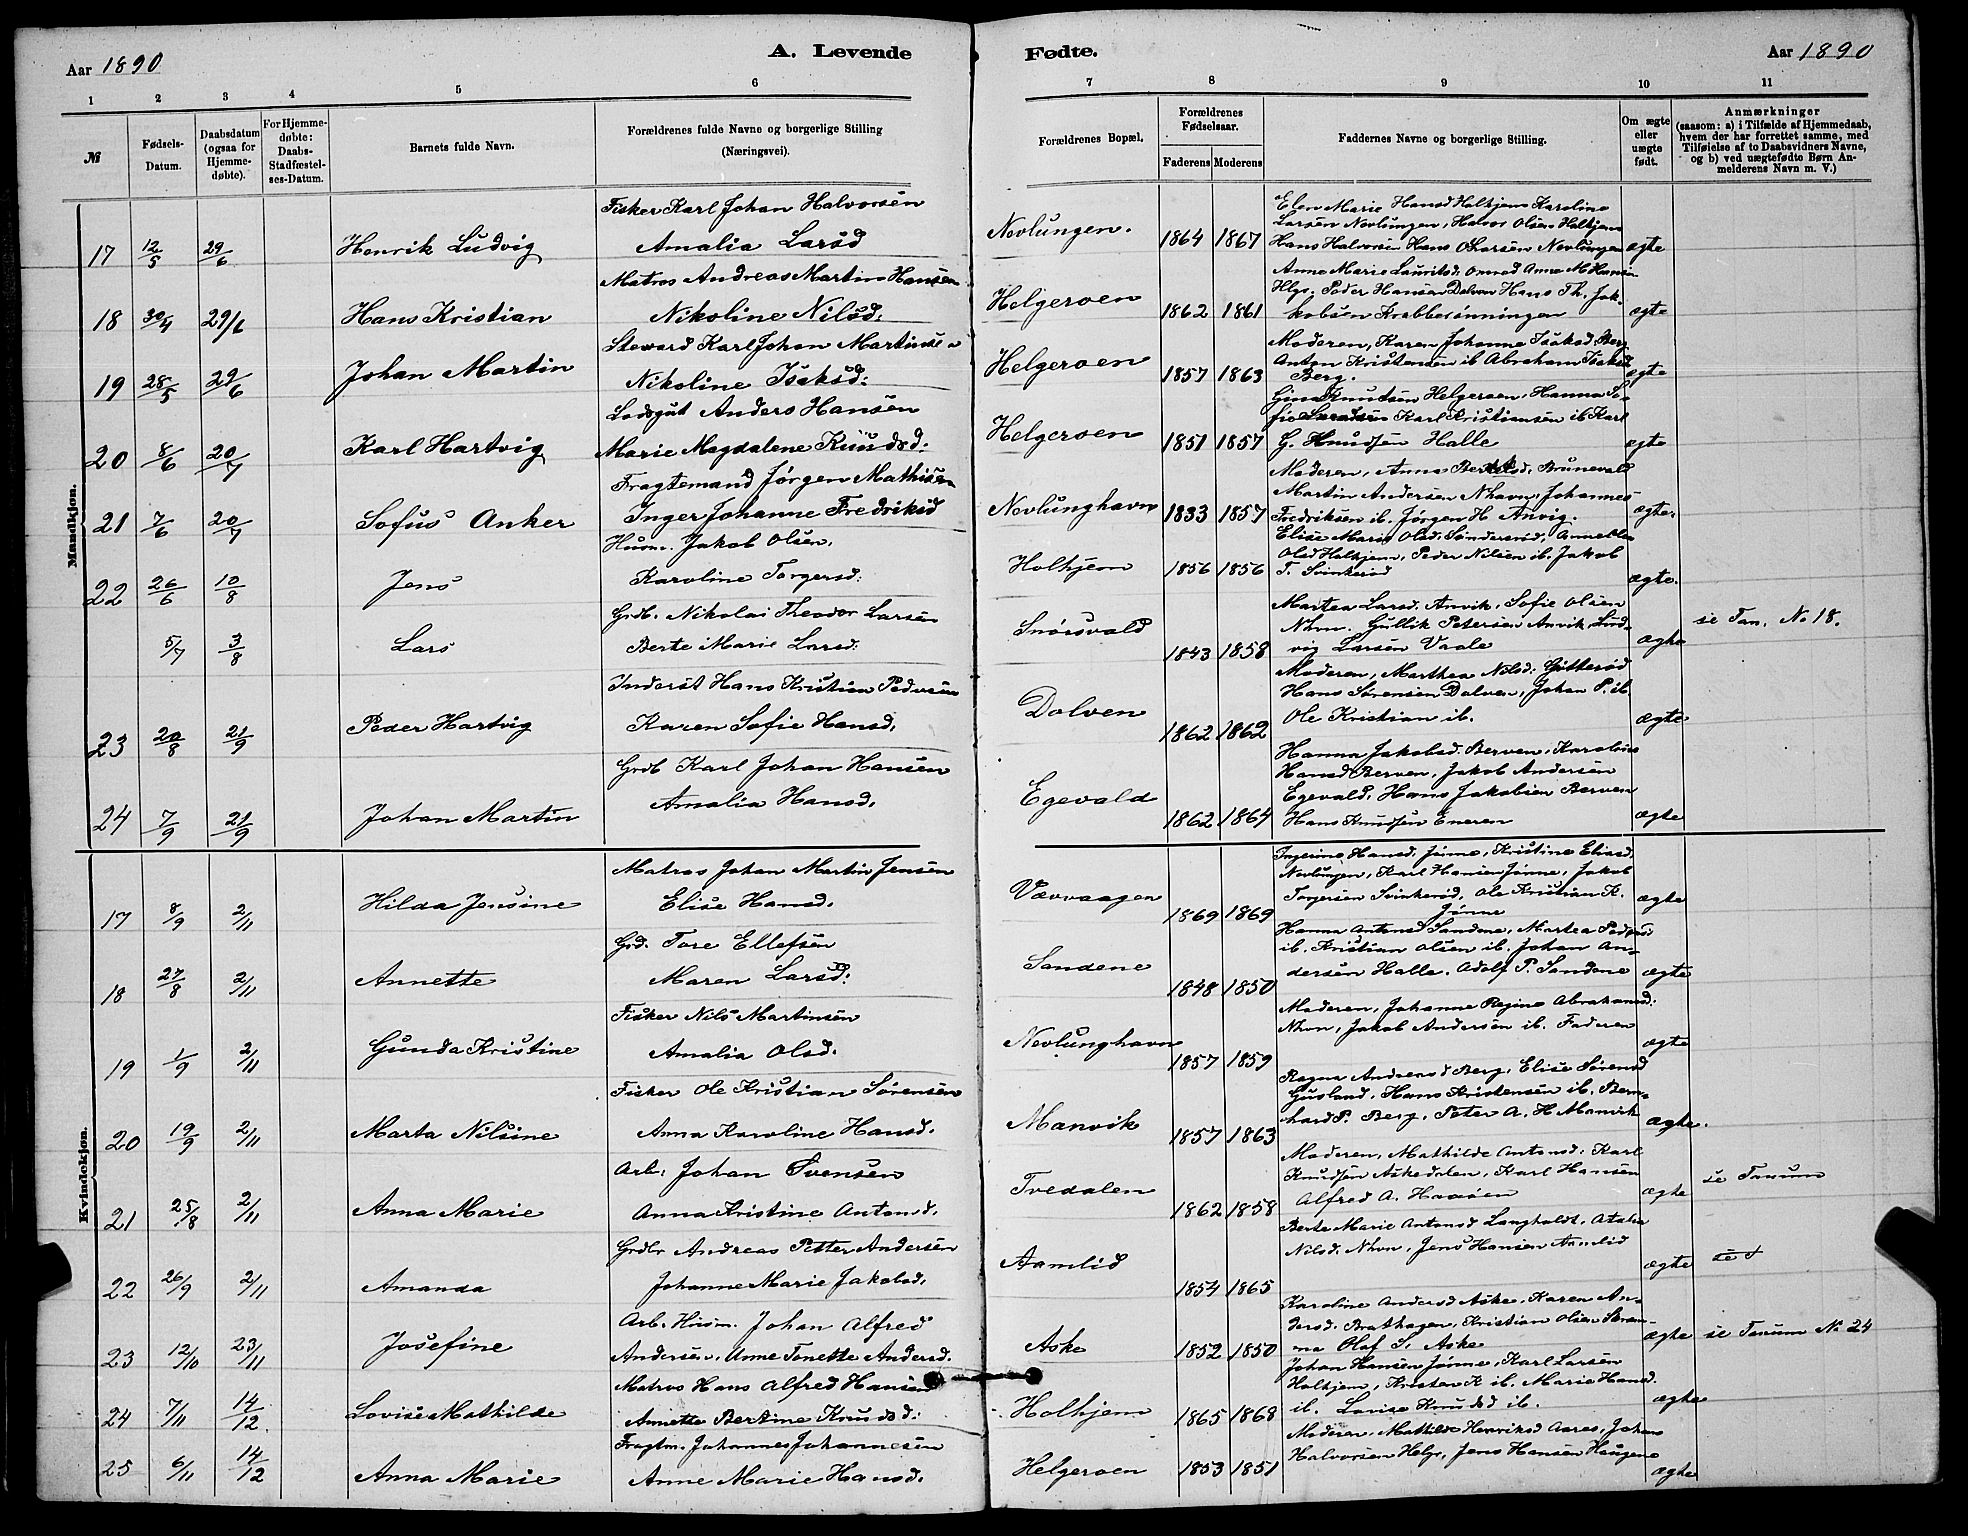 Aar 1890
A. Levende
Fødte.
Aar 1890
1 2 3 4 5 6 7 8 9 10 11
№
Fødsels-Datum.
Daabsdatum (ogsaa for Hjemme-døbte).
For Hjemme-døbte: Daabs-Stadfæstel-ses-Datum.
Barnets fulde Navn.
Forældrenes fulde Navne og borgerlige Stilling (Næringsvei).
Forældrenes Bopæl.
Forældrenes Fødselsaar.
Faderens Moderens
Faddernes Navne og borgerlige Stilling.
Om ægte eller uægte født.
Anmærkninger
(saasom: a) i Tilfælde af Hjemmedaab,
hvem der har forrettet samme, med
Tilføielse af to Daabsvidners Navne,
og b) ved uægtefødte Børn An-
melderens Navn m. V.)
Mandkjøn.
17 12/5 29/6 Henrik Ludvig
Fisker Karl Johan Halvorsen
Amalia Larsd
Nevlungen. 1864 1867
Elen Marie Hansd Holtjem Karoline
Larsen Nevlungen, Halvor Olsen Holtjem
Hans Halvorsen Hans O Larsen Nevlungen ægte
18 30/4 29/6 Hans Kristian
Matros Andreas Martin Hansen
Nikoline Nilsd.
Helgeroen 1862 1861
Anne Marie Lauritsd. Omrød Anne M Hansen
Hlgr. Peder Hansen Dolven Hans Th. Jak-
kobsen Krabbesønningen ægte
19 28/5 29/6 Johan Martin
Steward Karl Johan Martinsen
Nikoline Isaksd:
Helgeroen 1857 1863
Moderen, Karen Johanne Isaksd. Berg
Anton Kristensen ib Abraham Isaksen
Berg. ægte
20 8/6 20/7 Karl Hartvig
Lodsgut Anders Hansen
Marie Magdalene Knudsd.
Helgeroen 1851 1857
Gina Knudsen Helgeroen, Hanna So-
fie Karl Kristiansen ib Karl
G. Knudsen Halle ægte
21 7/6 20/7 Sofus Anker
Fragtemand Jørgen Mathisen
Inger Johanne Fredriksd
Nevlunghavn 1833 1857
Moderen, Anna Brunevald
Martin Andersen Nhavn, Johannes
Fredriksen ib. Jørgen H. Anvig. ægte.
22 26/6 10/8 Jens
Husm. Jakob Olsen.
Karoline Torgersd:
Holtjem 1856 1856
Elise Marie Olsd. Søndersrød, Anne Elen
Olsd Holtjem, Peder Nilsen ib. Jakob
T. Svinkerød ægte.
5/7 3/8 Lars
Grdb. Nikolai Theodor Larsen
Berte Marie Larsd:
Snørsvald 1843 1858
Martea Larsd. Anvik. Sofie Olsen
Nhvn. Gullik Petersen Anvik, Lud-
vig Larsen Vaale ægte se Tan. No 18.
23 20/8 21/9 Peder Hartvig
Inderst Hans Kristian Pedersen
Karen Sofie Hansd.
Dolven 1862 1862
Moderen, Marthea Nilsd: Gotterød
Hans Sørensen Dolven, Johan P. ib
Ole Kristian ib. ægte
24 7/9 21/9 Johan Martin
Grdb Karl Johan Hansen
Amalia Hansd.
Egevald 1862 1864
Hanna Jakobsd. Berven, Karoline
Hansd Berven, Jakob Andersen
Egevald. Hans Jakobsen Berven
Hans Knudsen Eneren ægte
Kvindekjøn.
17 8/9 2/11 Hilda Jensine
Matros Johan Martin Jensen
Elise Hansd.
Vævvaagen 1869 1869
Ingerine Hansd. Jønne, Kristine Eliasd.
Nevlungen, Karl Hansen Jønne, Jakob
Torgersen Svinkerød, Ole Kristian K.
Jønne ægte
18 27/8 2/11 Annette
Grd. Tore Ellefsen
Maren Larsd:
Sandene 1848 1850
Hanna Antonsd Sandene, Martea Pedersd
ib. Kristian Olsen ib. Johan An-
dersen Halle. Adolf P. Sandene ægte
19 1/9 2/11 Gunda Kristine
Fisker Nils Martinsen
Amalia Olsd.
Nevlunghavn 1857 1859
Moderen, Johanne Regine Abrahamsd.
Nhvn, Jakob Andersen ib. Faderen ægte
20 19/9 2/11 Marta Nilsine
Fisker Ole Kristian Sørensen
Anna Karoline Hansd.
Manvik 1857 1863
Ragna Andreasd Berg, Elise Sørensd
Gusland. Hans Kristensen ib. Bern-
hard P. Berg, Peter A. H Manvik ægte.
21 25/8 2/11 Anna Marie
Arb: Johan Svensen
Anna Kristine Antonsd.
Tvedalen 1862 1858
Moderen, Mathilde Antonsd. Karl
Knudsen Askedalen, Karl Hansen
Alfred A. Haasen ægte se Tanum
22 26/9 2/11 Amanda
Grdbr Andreas Petter Andersen
Johanne Marie Jakobsd.
Aamlid 1854 1865
Berte Marie Antonsd Langholdt. Atalia
Nilsd. Nhvn, Jens Hansen Aamlid ægte se
23 12/10 23/11 Josefine
Arb. Husm. Johan Alfred
Andersen, Anne Tonette Andersd.
Aske 1852 1850
Karoline Andersd Aske. Karen An-
dersd. Bratthagen, Kristian Olsen
Olaf S. Aske ægte se Tanum No 24
24 7/11 14/12 Lovise Mathilde
Matros Hans Alfred Hansen
Annette Bertine Knudsd:
Holtjem 1865 1868
Johan Hansen Jønne, Karl Larsen
Holtjem, Kristen K ib. Marie Hansd.
ib. Lovise Knudsd ib. ægte
25 6/11 14/12 Anna Marie
Fragtm. Johannes Johannesen
Anne Marie Hansd.
Helgeroen 1853 1851
Moderen. Mathilde Henriksd Aarøe, Johans
Halvorsen Helgr, Jens Hansen Haugene ægte